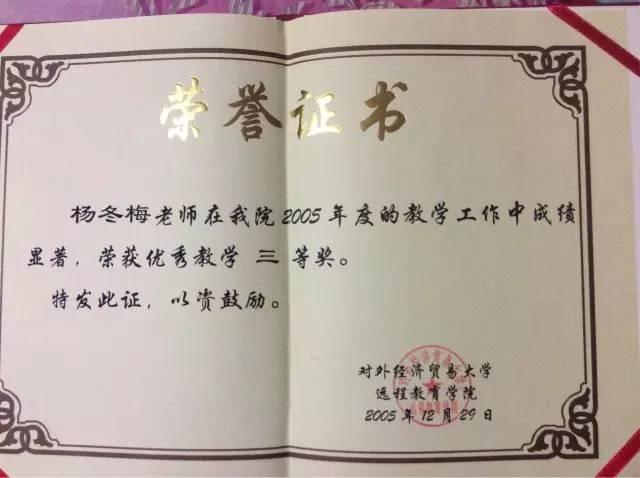 荣誉证书
杨冬梅老师在我院2005年度的教学工作中成绩
显著，荣获优秀教学 三 等奖。
特发此证，以资鼓励。
对外经济贸易大学
远程教育学院
2005年12月29日